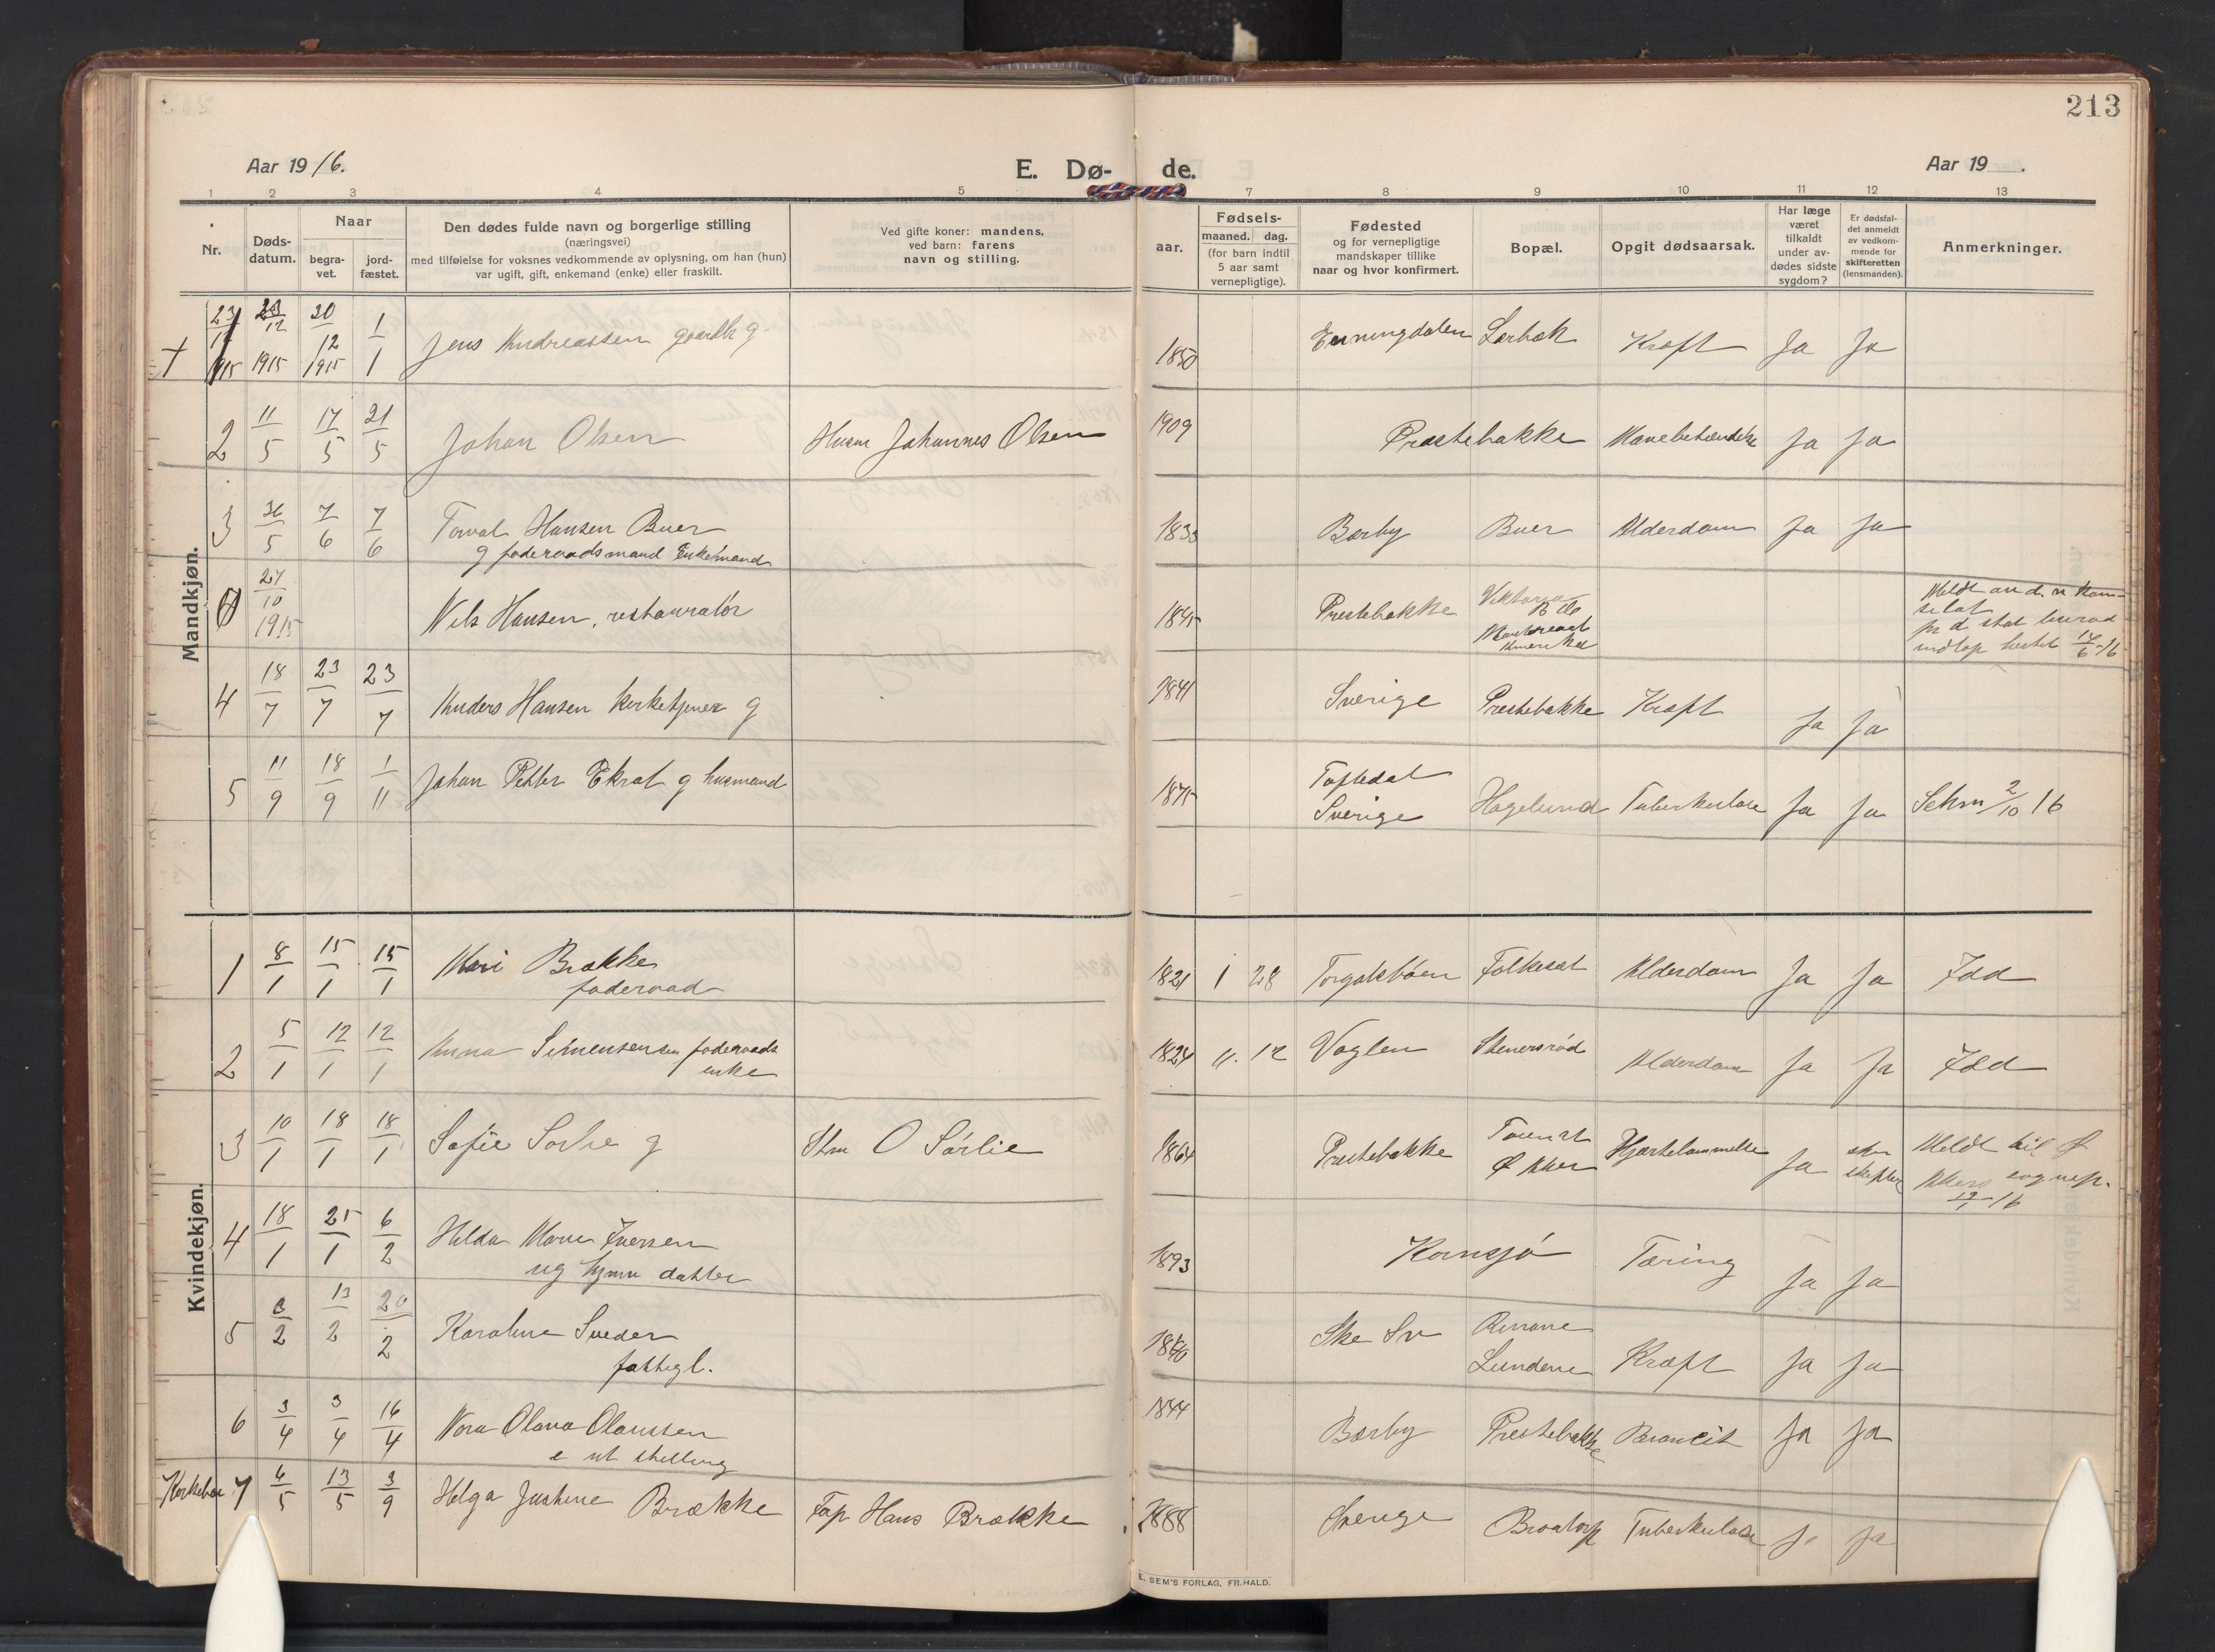 213
Aar 1916.
E. Dø-
de.
Aar 19 .
1 2 3 4 5 7 8 9 10 11 12 13
Nr.
Døds-
datum.
Naar
begra-
vet.
jord-
fæstet.
Den dødes fulde navn og borgerlige stilling
(næringsvei)
med tilføielse for voksnes vedkommende av oplysning, om han (hun)
var ugift, gift, enkemand (enke) eller fraskilt.
Ved gifte koner: mandens,
ved barn: farens
navn og stilling.
aar.
Fødsels-
maaned. dag.
(for barn indtil
5 aar samt
vernepligtige).
Fødested
og for vernepligtige
mandskaper tillike
naar og hvor konfirmert.
Bopæl.
Opgit dødsaarsak.
Har læge
været
tilkaldt
under av-
dødes sidste
sygdom?
Er dødsfal-
det anmeldt
av vedkom-
mende for
skifteretten
(lensmanden).
Anmerkninger.
Mandkjøn.
1 23/12 1915 30/12 1915 1/1 Jens Andreassen gaardb g. 1850 Enningdalen Lerbæk Kræft Ja Ja
2 11/5 17/5 21/5 Johan Olsen Husm Johannes Olsen 1909 Præstebakke Mavebetændelse Ja Ja
3 7/6 7/6 Torval Hansen Buer 1833 Børby Buer Alderdom Ja Ja
g føderaadsmand Enkemand
27/10 1915 Nils Hansen, restauratør 1845 Prestebakke
4 18/7 23/7 23/7 Anders Hansen kirketjener g 1841 Sverige Præstebakke Kræft Ja Ja
5 11/9 18/9 1/11 Johan Petter Ekrat g husmand 1875 Sverige Hagelund Tuberkulose Ja Ja 2/10 16
Kvindekjøn.
1 8/1 15/1 15/1 Mari Brække 1821 1 28 Torgalsbøen Folkesat Alderdom Ja Ja Idd
føderaad
2 5/1 12/1 12/1 Anna Simensen føderaads 1824 11. 12 Vaglen Stenersrød Alderdom Ja Ja Idd
enke
3 10/1 18/1 18/1 Sofie Sørlie g Stm O Sørlie 1864 Prestebakke Hjertelammelse Ja
4 18/1 25/1 6/2 Hilda Marie Iversen 1893 Kornsjø Tæring Ja Ja
ug datter
5 13/2 20/2 Karoline Sveder 1840 Ske Sv Lundene Kræft Ja Ja
fattigl.
6 3/4 3/4 16/4 Nora Olava Olaussen 1844 Børby Prestebakke Ja Ja
e ut stilling
Kirkebøe 7 6/5 13/5 3/9 Helga Justine Brække Fap Hans Brække 1888 Sverige Tuberkulose Ja Ja
E. SEM'S FORLAG, FR.HALD.